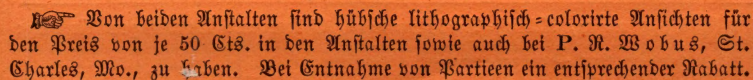 ☞ Von beiden Anstalten sind hübsche lithographisch-colorirte Ansichten für
den Preis von je 50 Cts. in den Anstalten sowie auch bei P. R. Wobus, St.
Charles, Mo., zu haben. Bei Entnahme von Partieen ein entsprechender Rabatt.